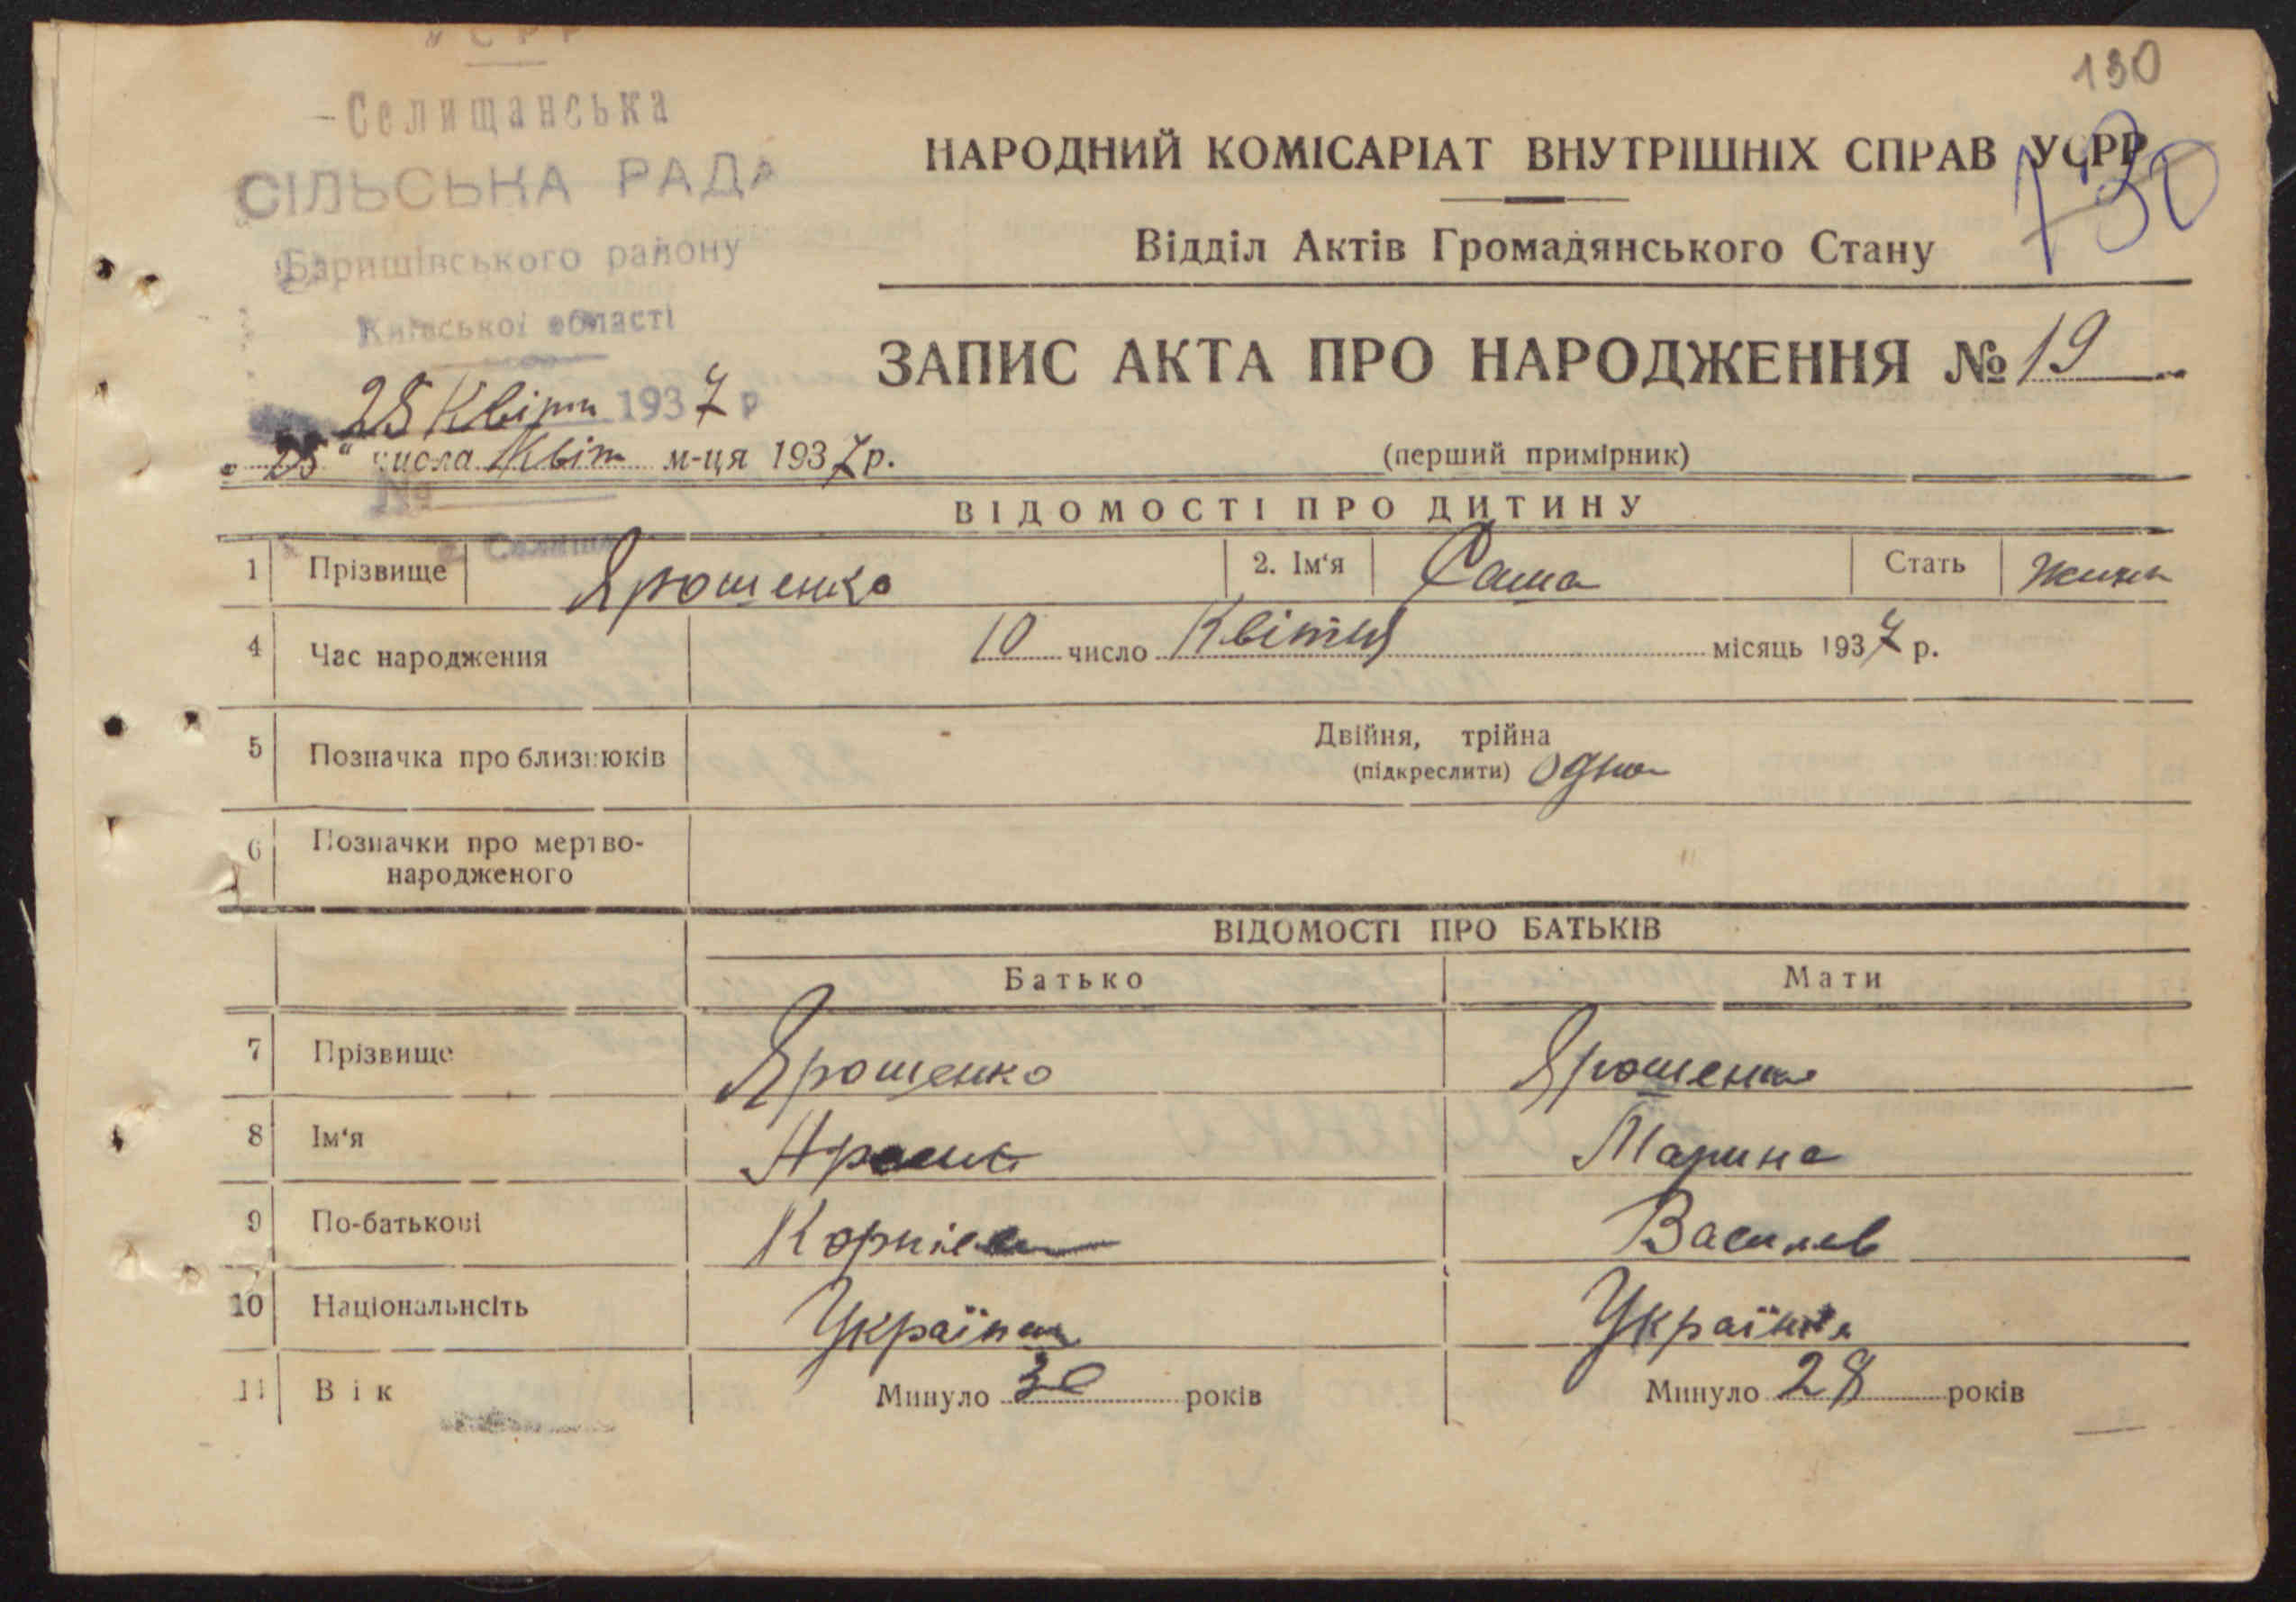 УСРР
130
Селищанська
СІЛЬСЬКА РАДА
Баришівського району
Київської області
28 Квітн 1937 р
№
с. Селище
130
НАРОДНИЙ КОМІСАРІАТ ВНУТРІШНІХ СПРАВ УСРР
Відділ Актів Громадянського Стану
ЗАПИС АКТА ПРО НАРОДЖЕННЯ № 19
„25“ числа Квітн м-ця 1937 р.
(перший примірник)
ВІДОМОСТІ ПРО ДИТИНУ
1 Прізвище Ярошенко 2. Ім‘я Саша Стать
4 Час народження 10 число Квітня місяць 1937 р.
5 Позначка про близнюків Двійня, трійна
(підкреслити) Одна
6 Позначки про мертво-
народженого
ВІДОМОСТІ ПРО БАТЬКІВ
Батько Мати
7 Прізвище Ярошенко Ярошенко
8 Ім‘я Марина
9 По-батькові Василів
10 Національнсіть
11 Вік Минуло 30 років Минуло 28 років